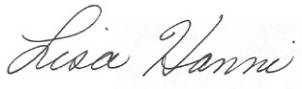 Lisa Hanni